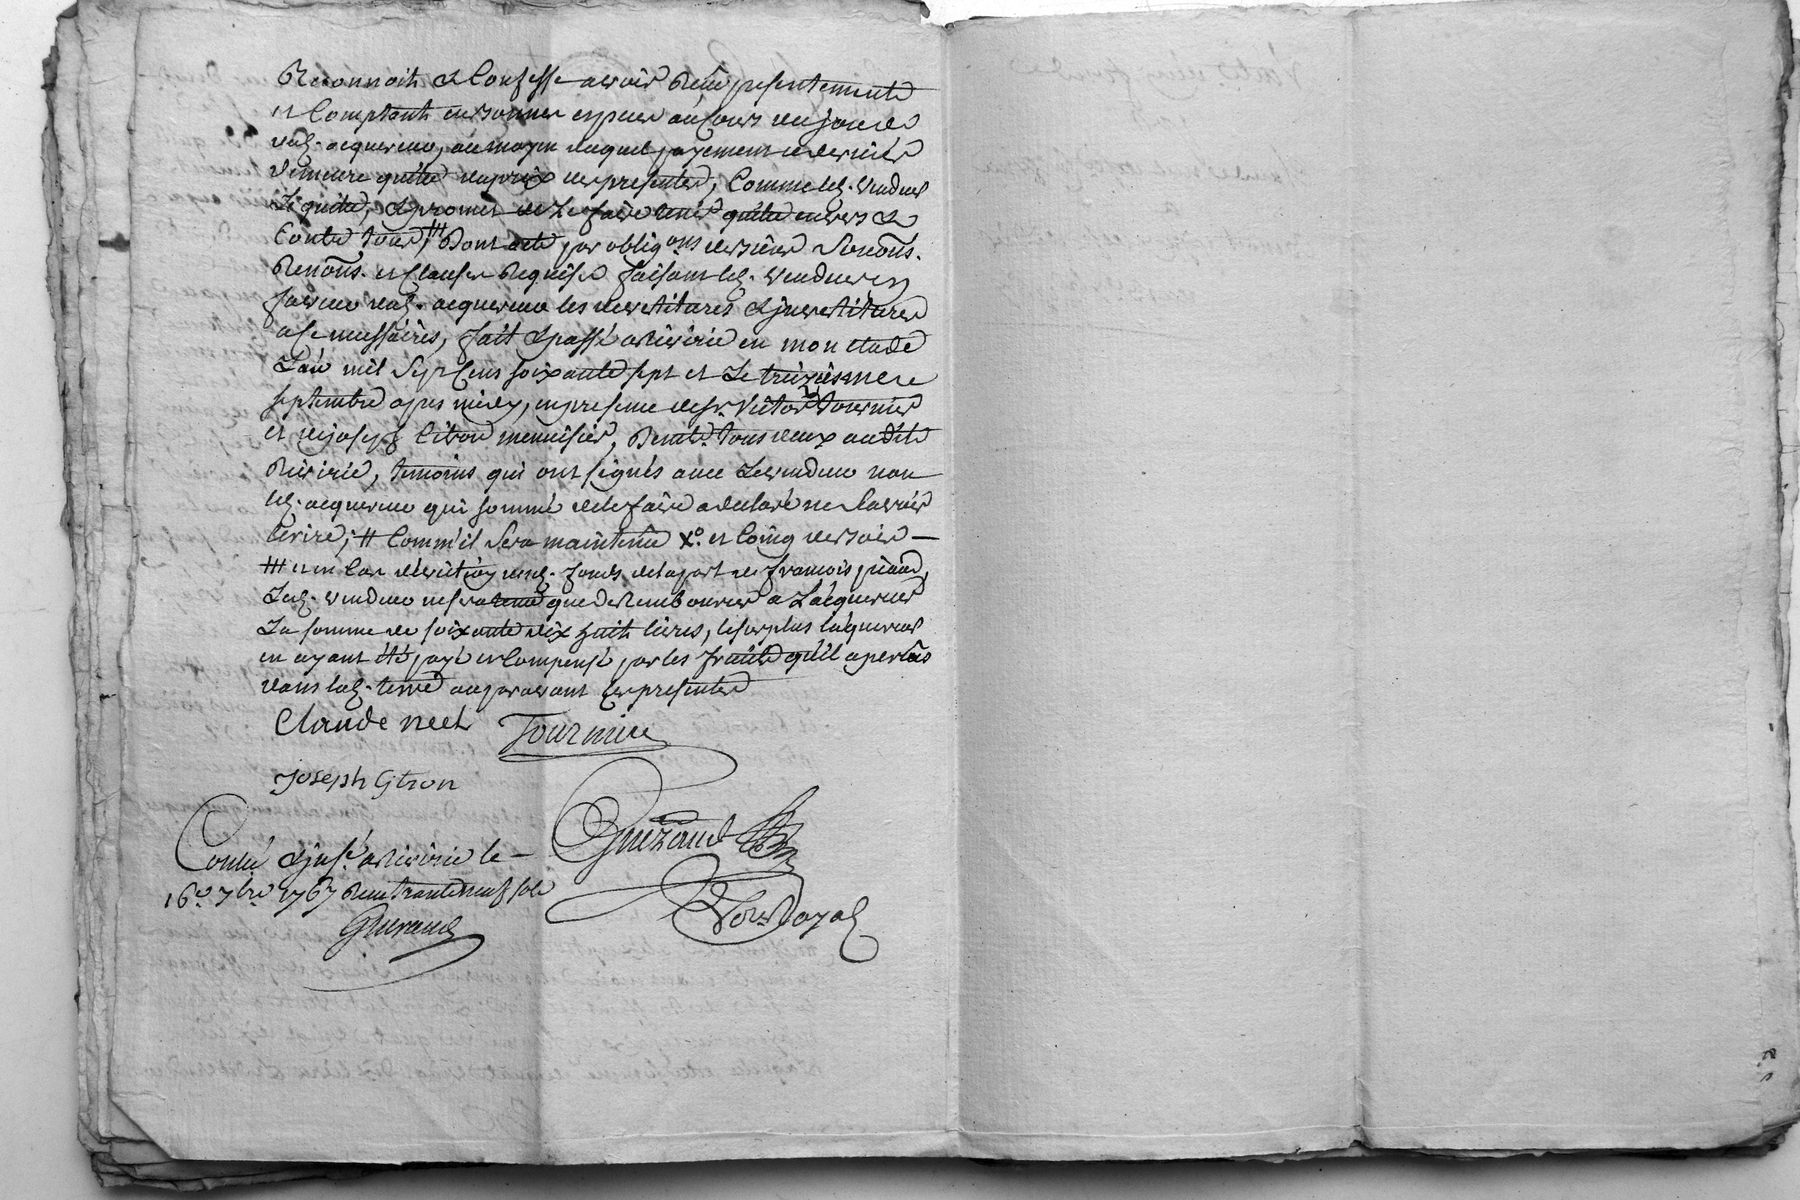 Reconnoit & Confesse avoir Receu presentement
et Comptant en bonnes especes au Cours de ce jour
dud. acquereur, au moyen duquel payement ce dernier
demeure quitte du prix des presentes, Comme led. vendeur
L'en quitte, & promet de Le faire tenir quitte envers &
Contre tous, ### Dont acte par obligons de biens Soumons.
Renons. et Clauses Requises faisant led. vendeur en
faveur dud. acquereur les devetitures & investitures
a ce necessaires, fait & passé a Rivirie en mon etude
L'an mil Sept Cens soixante sept et Le treizièsme
septembre apres midy, en presence de sr. Victor tournier
et de joseph Citron menuisier, Demts. tous deux audit
Rivirie, temoins qui ont signés avec Le vendeur non
led. acquereur qui sommé de le faire a declaré ne Savoir
Ecrire; # Comm'il Sera maintenu Xo. et Coing de soir —
### et en Cas d'eviction dud. fonds de la part de françois picard,
Led. vendeur ne sera tenu que de Rembourser a L'acquereur
La somme de soixante dix huit livres, le surplus l'aquereur
en ayant été payé et Compensé par les fruits qu'il a perçus
dans lad. terre auparavant les presentes
Claude neel Tournier
Joseph Citron
Guerand
Nore. Royal
Contlé & insé. a Rivirie le —
16e. 7bre 1767 Receu trente neuf sols
Guerand